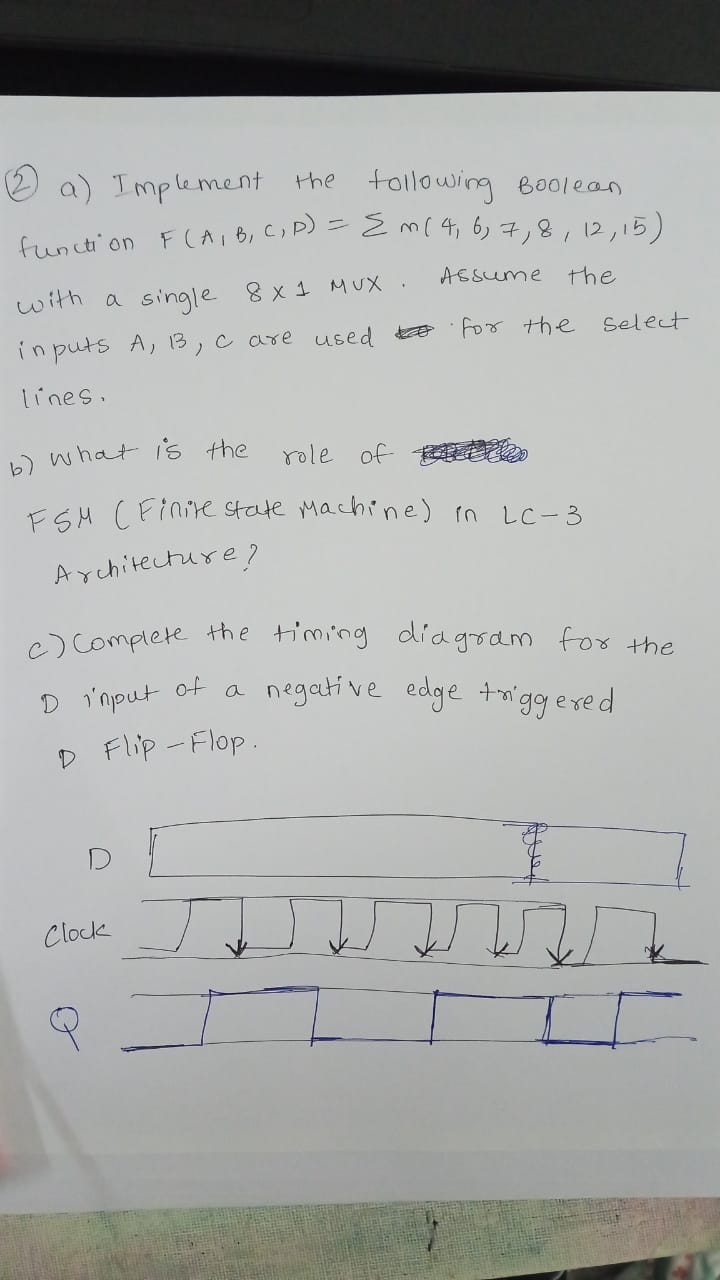 ② a) Implement the following Boolean
function F(A, B, C, D) = Σ m(4, 6, 7, 8, 12, 15)
with a single 8 x 1 MUX. Assume the
inputs A, B, C are used for the select
lines.
b) What is the role of
FSM (Finite State Machine) in LC-3
Architecture?
c) Complete the timing diagram for the
D input of a negative edge triggered
D Flip-Flop.
D
Clock
Q